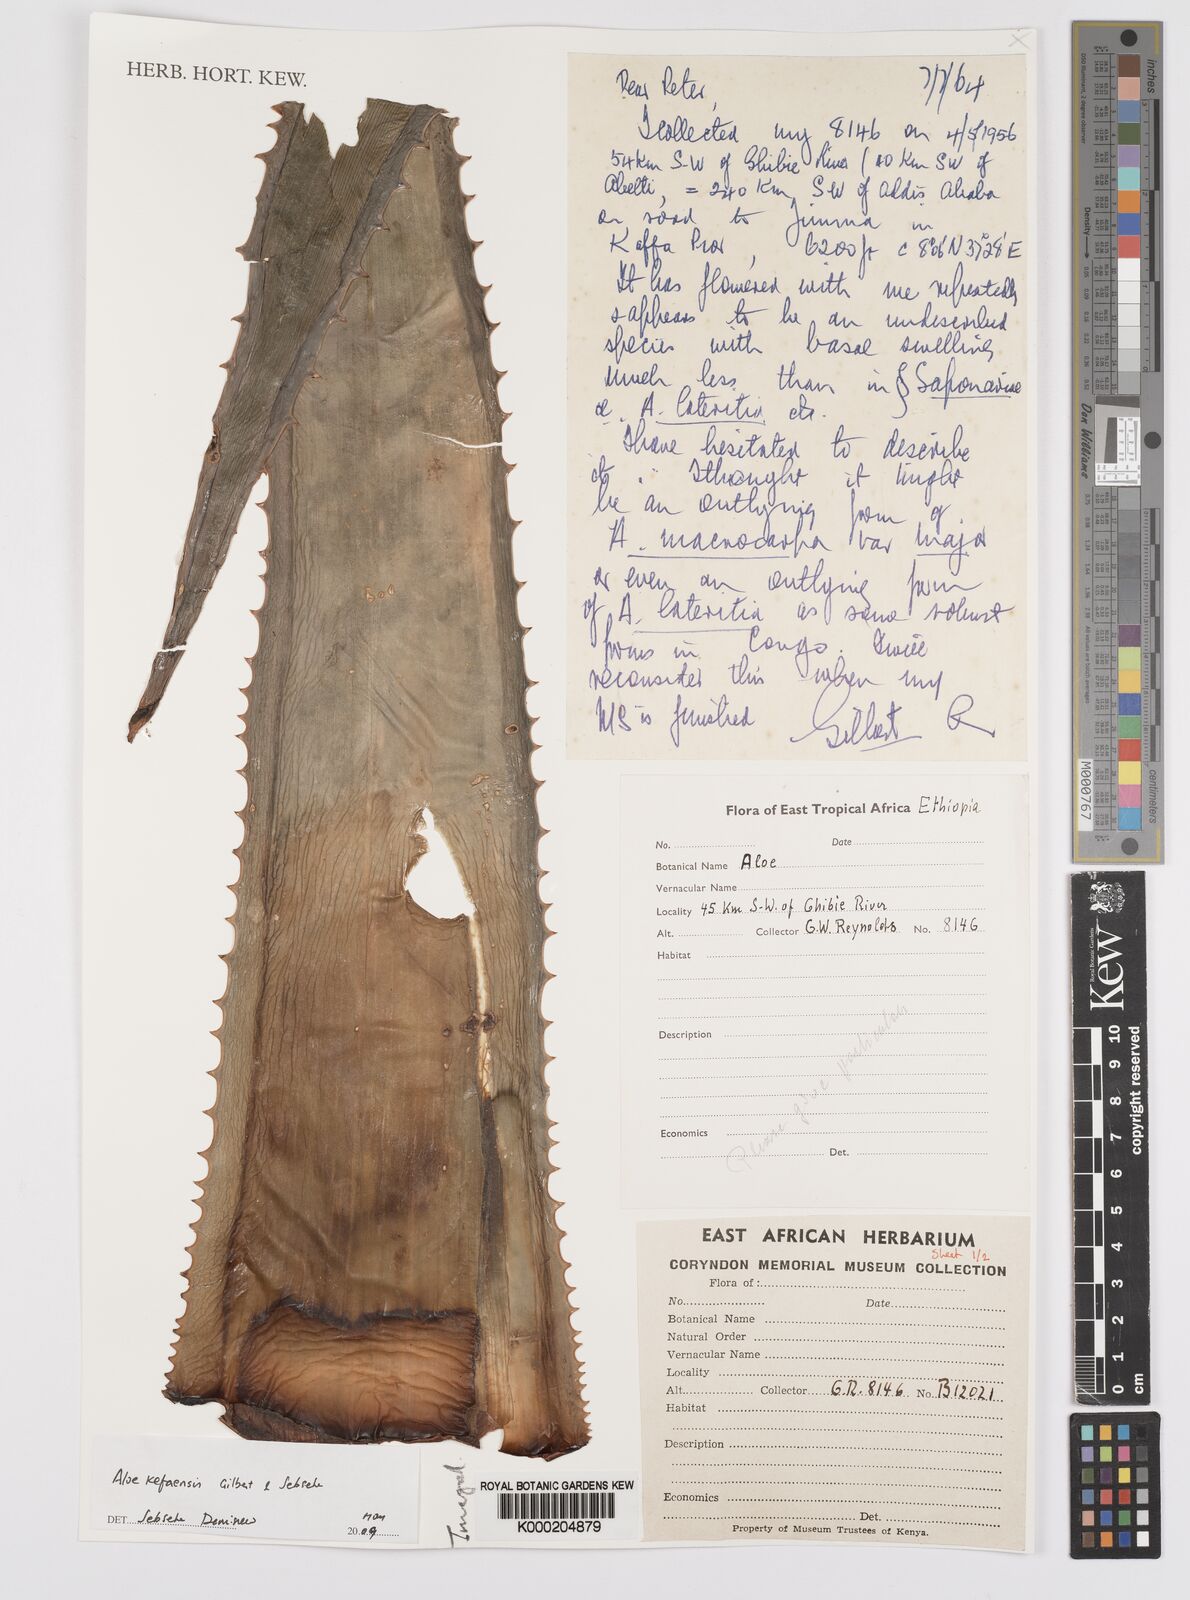 HERB. HORT. KEW.
Dear Peter, 7/7/64
I collected my 8146 on 4/5/1956
54 km S-W of Ghibie River (10 Km SW of
Abelti, = 240 Km SW of Addis Ababa
on road to Jimma in
Kaffa Prov, 6200ft c 8°06'N 37°28'E
It has flowered with me repeatedly
& appears to be an undescribed
species with basal swelling
much less than in § Saponariae
A. lateritia etc.
I have hesitated to describe
it I thought it might
be an outlying form of
A. macrocarpa var major
or even an outlying form
of A. lateritia as some robust
forms in Congo. I will
reconsider this when my
MS is finished Gilbert R
Flora of East Tropical Africa Ethiopia
No. Date
Botanical Name Aloe
Vernacular Name
Locality 45 Km S-W. of Ghibie River
Alt. Collector G.W. Reynolds No. 8146
Habitat
Description
Please give particulars
Economics
Det.
EAST AFRICAN HERBARIUM
Sheet 1/2
CORYNDON MEMORIAL MUSEUM COLLECTION
Flora of:
No. Date
Botanical Name
Natural Order
Vernacular Name
Locality
Alt. Collector G.R. 8146 No. B12021
Habitat
Description
Economics
Det.
Property of Museum Trustees of Kenya.
Aloe kefaensis Gilbert & Sebsebe
DET. Sebsebe Demissew
20.09
Imaged.
ROYAL BOTANIC GARDENS KEW
K000204879
inches
centimetres
Don Williams
M000767
Density
Royal Botanic Gardens
Kew
copyright reserved
0 1 2 3 4 5 6 7 8 9 10
cm